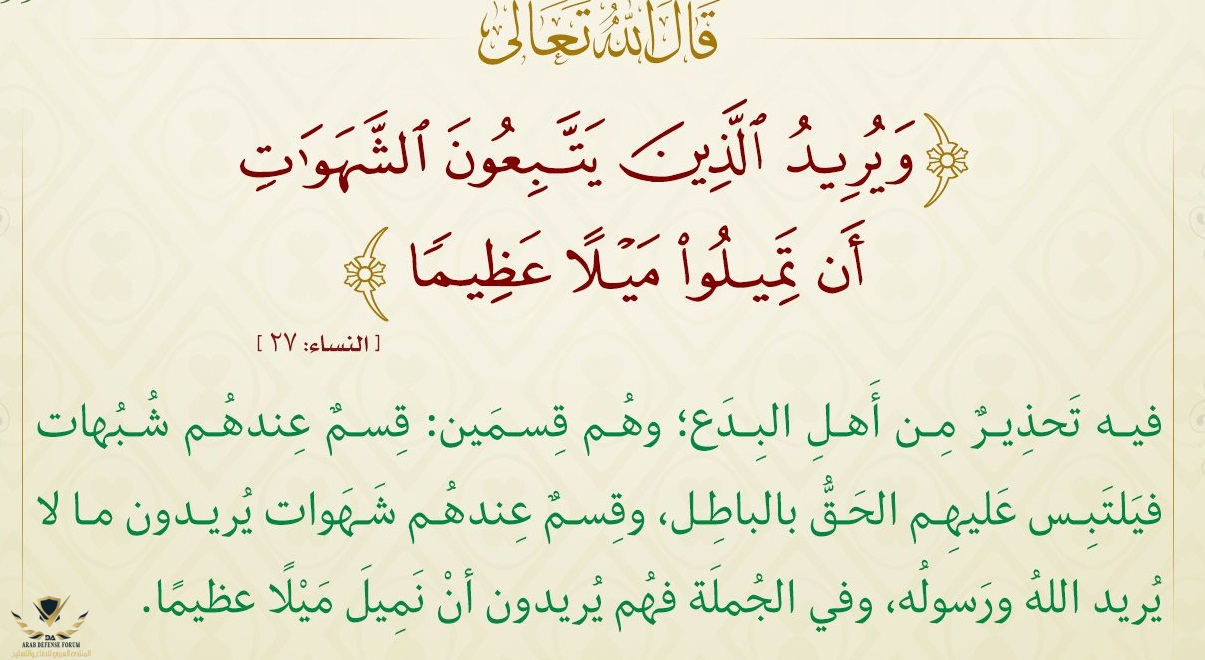 قَالَ اللهُ تَعَالَى
﴿وَيُرِيدُ ٱلَّذِينَ يَتَّبِعُونَ ٱلشَّهَوَٰتِ
أَن تَمِيلُوا۟ مَيْلًا عَظِيمًا﴾
[النساء: ٢٧]
فيـه تَحذِيـرٌ مِـن أَهـلِ البِـدَع؛ وهُـم قِسـمَين: قِسـمٌ عِندهُـم شُـبُهات
فيَلتَبِـس عَليهِـم الحَـقُّ بالباطِـل، وقِسـمٌ عِندهُـم شَـهَوات يُريـدون مـا لا
يُريد اللهُ ورَسولُه، وفي الجُملَة فهُم يُريدون أنْ نَمِيلَ مَيْلًا عظيمًا.
DA
ARAB DEFENSE FORUM
المنتدى العربي للدفاع والتسليح